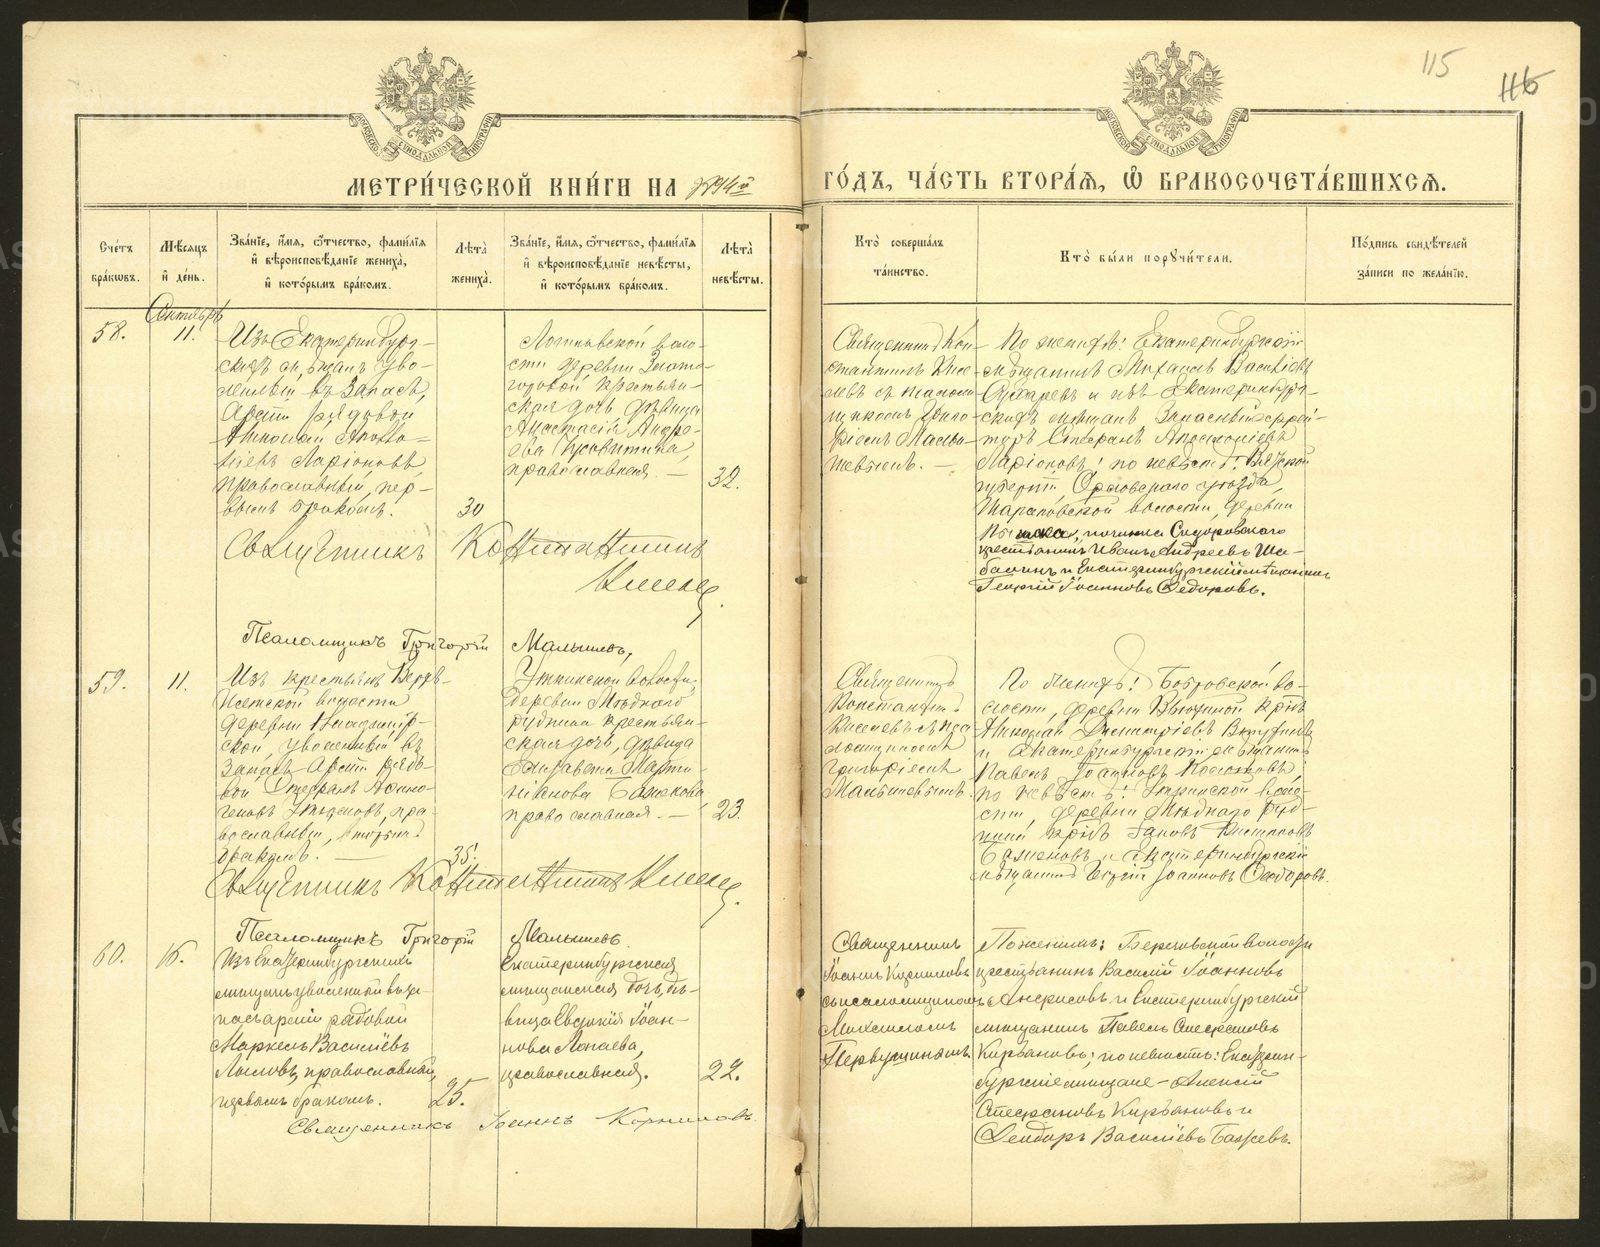 115
116
МОСКОВСКОЙ СѴНОДАЛЬНОЙ ТИПОГРАФІИ
МОСКОВСКОЙ СѴНОДАЛЬНОЙ ТИПОГРАФІИ
МЕТРИ́ЧЕСКОЙ КНИ́ГИ НА 1894й
ГО́ДЪ, ЧА́СТЬ ВТОРА́Я, Ѽ БРАКОСОЧЕТА́ВШИХСЯ.
Сче́тъ бра́ковъ.
Мѣ́сяцъ и҆ де́нь.
Зва́нїе, и҆́мя, ѻ҆́тчество, фами́лїя и҆ вѣроисповѣ́данїе жениха̀, и҆ кото́рымъ бра́комъ.
Лѣ́та̀ жениха̀.
Зва́нїе, и҆́мя, ѻ҆́тчество, фами́лїя и҆ вѣроисповѣ́данїе невѣ́сты, и҆ кото́рымъ бра́комъ.
Лѣ́та̀ невѣ́сты.
Кто̀ соверша́лъ та́инство.
Кто̀ бы́ли порꙋчи́тели.
По́дпись свидѣ́телей за́писи по жела́нїю.
Сентябрь
58.
11.
Изъ Екатеринбург-
скихъ мѣщанъ уво-
ленный въ Запасъ
Арміи рядовой
Николай
Ларіоновъ,
православный, пер-
вымъ бракомъ.
30
воло-
сти деревни
крестьян-
ская дочь, дѣвица
Анастасія Андре-
ева
православная. —
32.
Священникъ Кон-
стантинъ Кисе-
левъ съ псалом-
щикомъ Григо-
ріемъ Малы-
шевымъ. —
По женихѣ: Екатеринбургскій
мѣщанинъ Михаилъ Васильевъ
и изъ Екатеринбург-
скихъ мѣщанъ Запасный ефрей-
торъ Стефанъ
Ларіоновъ; по невѣстѣ: Вятской
губерніи Орловскаго уѣзда,
волости, деревни
починка Сидоровскаго
крестьянинъ Иванъ Андреевъ Ша-
балинъ и Екатеринбургскій мѣщанинъ
Георгій Іоанновъ Ѳедоровъ.
Священникъ Константинъ
Киселевъ.
Псаломщикъ Григорій Малышевъ,
59.
11.
Изъ крестьянъ Верхъ-
Исетской волости
деревни
ской, уволенный въ
Запасъ Арміи рядо-
вой Стефанъ
пра-
вославный, вторымъ
бракомъ. —
35.
Уткинской волости,
деревни Мѣднаго
рудника крестьян-
ская дочь, дѣвица
Елизавета Марти-
ніанова Баженова,
православная. —
23.
Священникъ
Константинъ
Киселевъ съ пса-
ломщикомъ
Григоріемъ
Малышевымъ.
По женихѣ: Бобровской во-
лости, деревни крест.
Николай Димитріевъ
и Екатеринбургскій мѣщанинъ
Павелъ Іоанновъ
по невѣстѣ: Уткинской воло-
сти, деревни Мѣднаго Руд-
ника крест. Іаковъ
Баженовъ и Екатеринбургскій
мѣщанинъ Георгій Іоанновъ Ѳедоровъ.
Священникъ Константинъ Киселевъ.
Псаломщикъ Григорій Малышевъ.
60.
16.
Изъ Екатеринбургскихъ
мѣщанъ уволенный въ за-
пасъ арміи рядовой
Маркелъ Васильевъ
православный,
первымъ бракомъ.
25.
Екатеринбургская
мѣщанская дочь, дѣ-
вица Евдокія Іоан-
нова Лопаева,
православная.
22.
Священникъ
Іоаннъ Корниловъ
съ псаломщикомъ
Михаиломъ
Первушинымъ
По женихѣ: Березовской волости
крестьянинъ Василій Іоанновъ
Анфисовъ и Екатеринбургскій
мѣщанинъ Павелъ Стефановъ
Кирьановъ; по невѣстѣ: Екатерин-
бургскіе мѣщане - Алексій
Стефановъ Кирьановъ и
Ѳеодоръ Васильевъ Бажевъ.
Священникъ Іоаннъ Корниловъ.